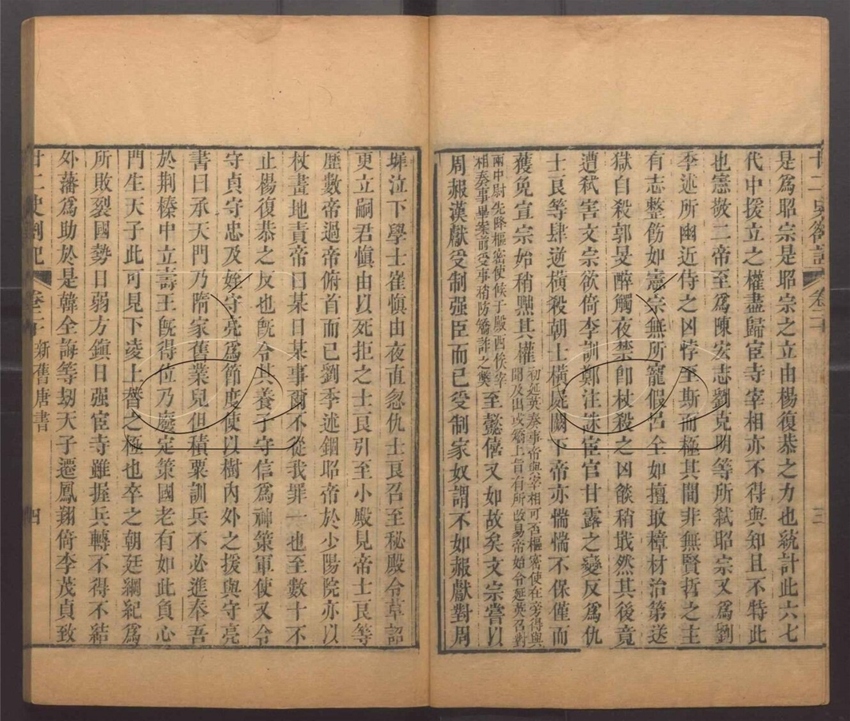 廿二史劄記 卷二十 三
是爲昭宗是昭宗之立由楊復恭之力也統計此六七
代中援立之權盡歸宦寺宰相亦不得與知且不特此
也憲敬二帝至爲陳宏志劉克明等所弑昭宗又爲劉
季述所幽近侍之凶悖至斯而極其間非無賢哲之主
有志整飭如憲宗無所寵假呂全如擅取樟材治第送
獄自殺郭旻醉觸夜禁卽杖殺之凶燄稍戢然其後竟
遭弑害文宗欲倚李訓鄭注誅宦官甘露之變反爲仇
士良等肆逆橫殺朝士橫屍闕下帝亦惴惴不保僅而
獲免宣宗始稍黜其權初延英奏事帝與宰相可否樞密使在旁得與
聞及出或矯上旨有所改易帝始令延英召對
兩中尉先降樞密使候于殿西俟宰
相奏事畢案前受事稍防矯詐之獘至懿僖又如故矣文宗嘗以
周赧漢獻受制强臣而已受制家奴謂不如赧獻對周
墀泣下學士崔愼由夜直忽仇士良召至秘殿令草詔
更立嗣君愼由以死拒之士良引至小殿見帝士良等
歷數帝過帝俯首而已劉季述錮昭帝於少陽院亦以
杖畫地責帝曰某日某事爾不從我罪一也至數十不
止楊復恭之反也旣令其養子守信爲神策軍使又令
守貞守忠及姪守亮爲節度使以樹內外之援與守亮
書曰承天門乃隋家舊業兒但積粟訓兵不必進奉吾
於荆榛中立壽王旣得位乃廢定策國老有如此負心
門生天子此可見下凌上替之極也卒之朝廷綱紀爲
所敗裂國勢日弱方鎭日强宦寺雖握兵轉不得不結
外藩爲助於是韓全誨等刼天子遷鳳翔倚李茂貞致
廿二史劄記 卷二十 新舊唐書 四